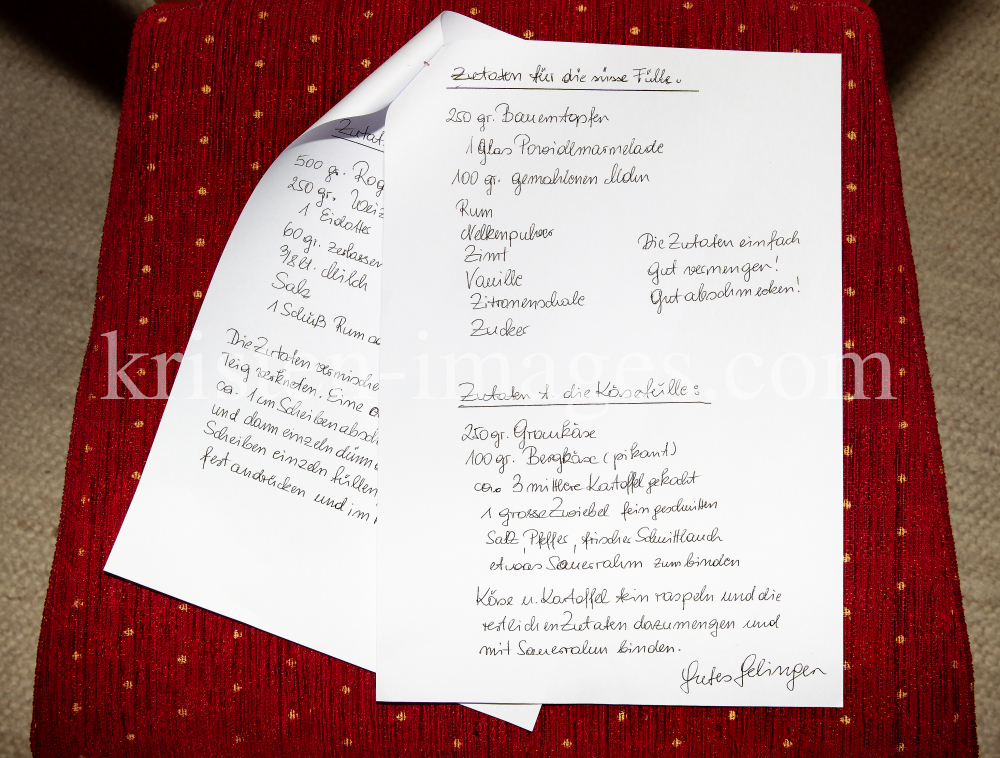 Zutaten für die süsse Fülle.
250 gr. Bauerntopfen
1 Glas Powidlmarmelade
100 gr. gemahlenen Mohn
Rum
Nelkenpulver
Zimt
Vanille
Zitronenschale
Zucker
Die Zutaten einfach
gut vermengen!
Gut abschmecken!
Zutaten f. die Käsefülle:
250 gr. Graukäse
100 gr. Bergkäse (pikant)
ca. 3 mittlere Kartoffel gekocht
1 grosse Zwiebel fein geschnitten
Salz, Pfeffer, frischer Schnittlauch
etwas Sauerrahm zum binden
Käse u. Kartoffel fein raspeln und die
restlichen Zutaten dazumengen und
mit Sauerrahm binden.
Gutes Gelingen
Zutat
500 gr. Rog
250 gr. Weiz
1 Eidotter
60 gr. zerlassen
3/8 lt. Milch
Salz
1 Schuß Rum od
Die Zutaten vermische
Teig verkneten. Eine
ca. 1 cm Scheiben absch
und dann einzeln dünn
Scheiben einzeln füllen
fest andrücken und im
kristen-images.com